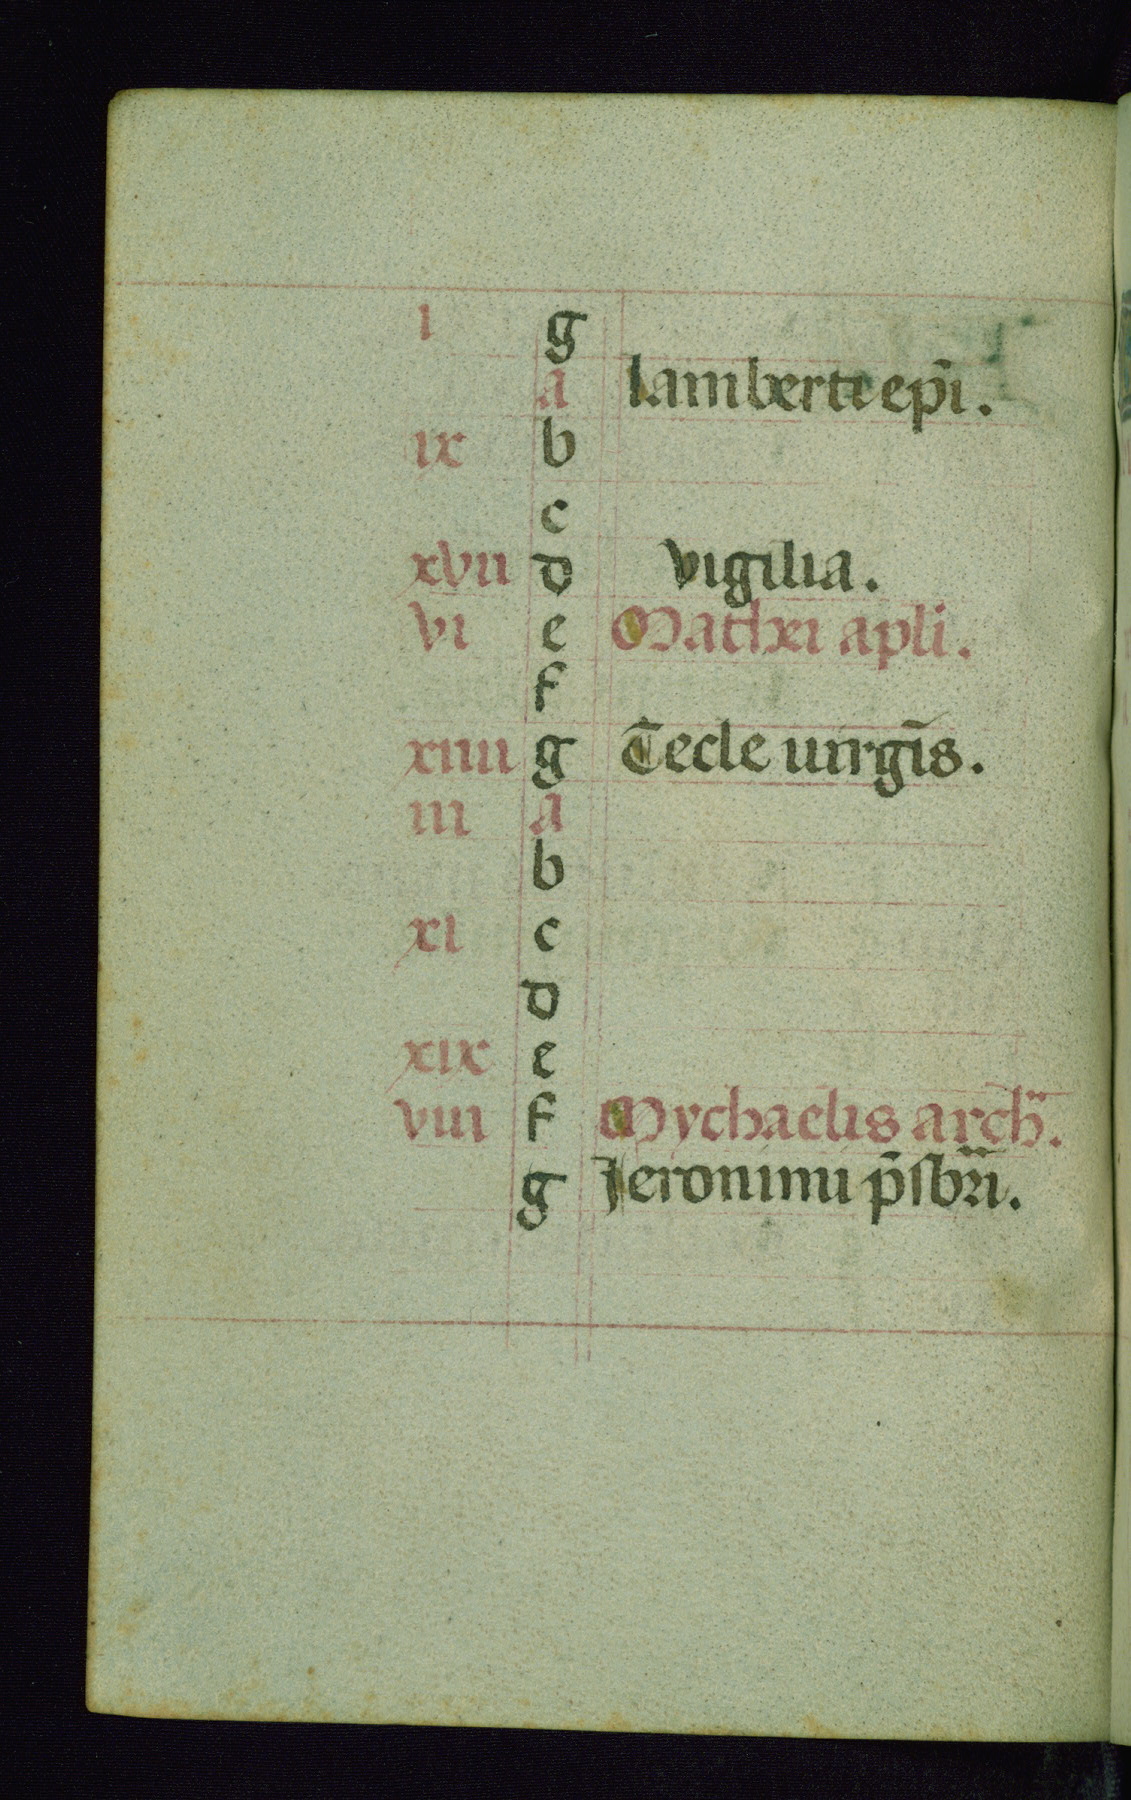 i g
a Lamberti ep̃i.
ix b
c
xvii d vigilia.
vi e Mathei apli.
f
xiiii g Tecle uirgĩs.
iii a
b
xi c
d
xix e
viii f Mychaelis arch̃.
g Jeronimi p̃sbr̃i.